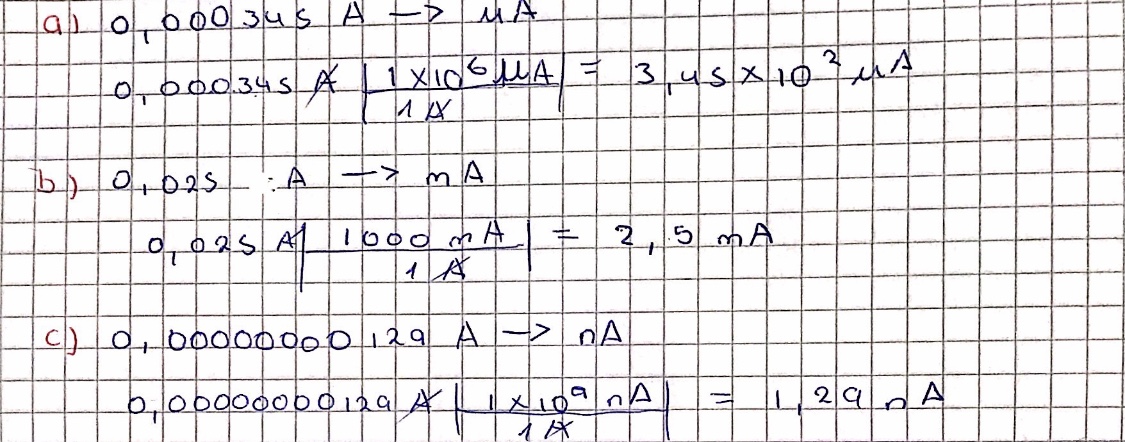 a) 0,000345 A → μA
0,000345 A | 1 x10⁶ μA | = 3,45 x 10² μA
1 A
b) 0,025 A → mA
0,025 A | 1000 mA | = 2,5 mA
1 A
c) 0,00000000129 A → nA
0,00000000129 A | 1 x 10⁹ nA | = 1,29 nA
1 A